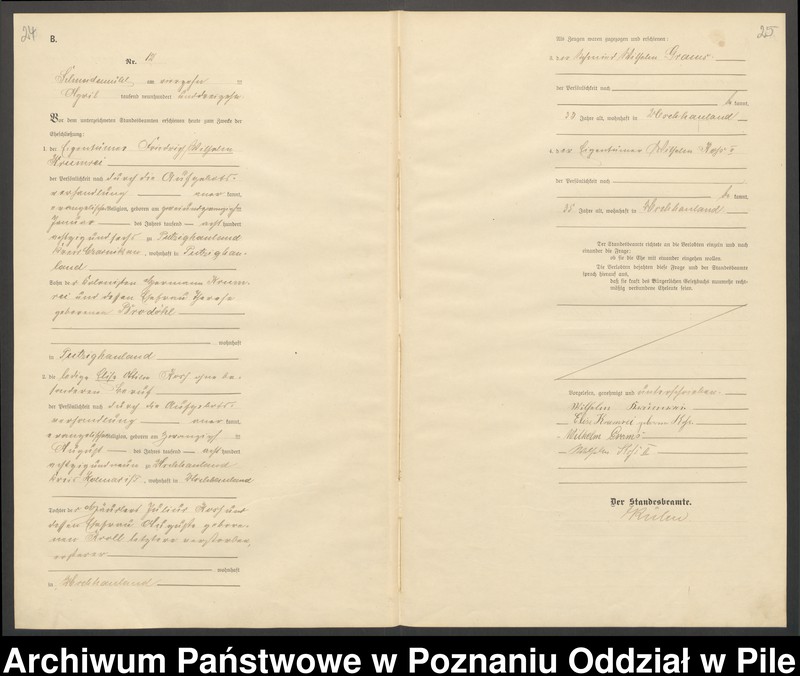 24
B.
Nr. 12
Schneidemühl, am vierzehn ten
April tausend neunhundert und dreizehn
Vor dem unterzeichneten Standesbeamten erschienen heute zum Zwecke der
Eheschließung:
1. der Eigentümer Friedrich Wilhelm
Krumrei
der Persönlichkeit nach durch die Aufgebots-
verhandlung aner kannt,
evangelischer Religion, geboren am zweiundzwanzigsten
Januar des Jahres tausend acht hundert
achtzig und sechs zu Putzighauland
Kreis Czarnikau, wohnhaft in Putzighau-
land
Sohn des Kolonisten Hermann Krum-
rei und dessen Ehefrau
geborenen Brodöhl
wohnhaft
in Putzighauland
2. die ledige Elise Ottilie Rosh ohne be-
sonderen Beruf
der Persönlichkeit nach durch die Aufgebots-
verhandlung aner kannt,
evangelischer Religion, geboren am zwanzig ten
August des Jahres tausend acht hundert
achtzig und neun zu Hochhauland
Kreis Kolmar, wohnhaft in Hochhauland
Tochter des Häuslers Julius und
dessen Ehefrau Auguste gebore-
nen Kroll letztere verstorben,
ersterer
wohnhaft
in Hochhauland
25
Als Zeugen waren zugezogen und erschienen:
3. der Wilhelm Grams
der Persönlichkeit nach
be kannt,
Jahre alt, wohnhaft in Hochhauland
4. der Eigentümer Wilhelm
der Persönlichkeit nach
be kannt,
35 Jahre alt, wohnhaft in Hochhauland
Der Standesbeamte richtete an die Verlobten einzeln und nach
einander die Frage:
ob sie die Ehe mit einander eingehen wollen.
Die Verlobten bejahten diese Frage und der Standesbeamte
sprach hierauf aus,
daß sie kraft des Bürgerlichen Gesetzbuchs nunmehr recht-
mäßig verbundene Eheleute seien.
Vorgelesen, genehmigt und unterschrieben.
Wilhelm Krumrei
Elise Krumrei geborene
Wilhelm Grams
Wilhelm II
Der Standesbeamte.
Archiwum Państwowe w Poznaniu Oddział w Pile